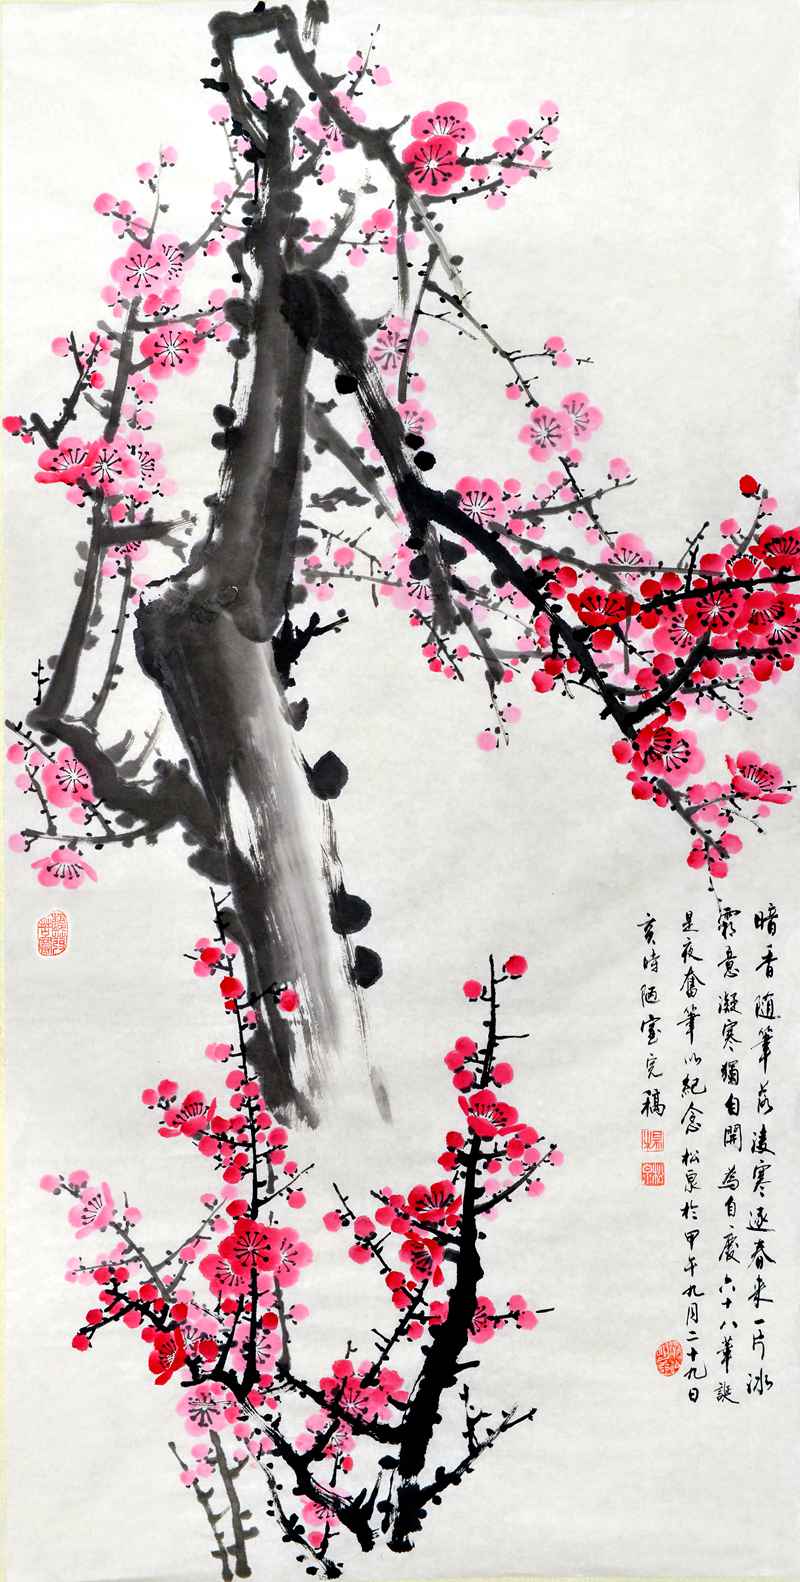 暗香随筆落凌寒逐春来一片冰
霜意凝寒獨自開為自慶六十八華誕
是夜奮筆以紀念松泉於甲午九月二十九日
亥时陋室完稿